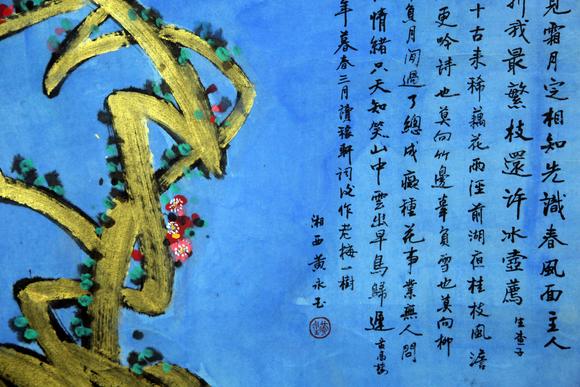 見霜月定相知先識春風面主人
折我最繁枝還许冰壺薦 生查子
十古来稀藕花雨溼前湖夜桂枝風澹
更吟詩也莫向竹邊辜負雪也莫向柳
負月閒過了總成癡種花事業無人問
情緒只天知笑山中雲出早鳥歸遲 最高樓
年暮春三月讀稼軒詞後作老梅一樹
湘西黄永玉